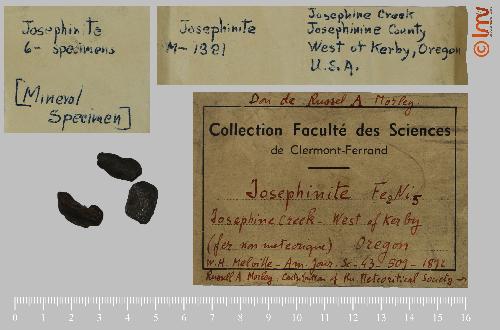 Josephinite
6- Specimens
[Mineral
Specimen]
Josephinite
M-1321
Josephine Creek
Josephinine County
West of Kerby, Oregon
U.S.A.
© lmv
Don de Russel A Morley
Collection Faculté des Sciences
de Clermont-Ferrand
Josephinite Fe2Ni5
Josephine Creek - West of Kerby
(fer non meteorique) Oregon
W.H. Melville - Am. Jour. Sc - 43 - 509 - 1892
Russell A Morley. Contribution of the Meteoritical Society →
0 1 2 3 4 5 6 7 8 9 10 11 12 13 14 15 16